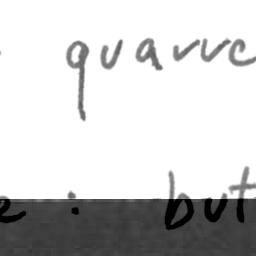 quarre
e : but